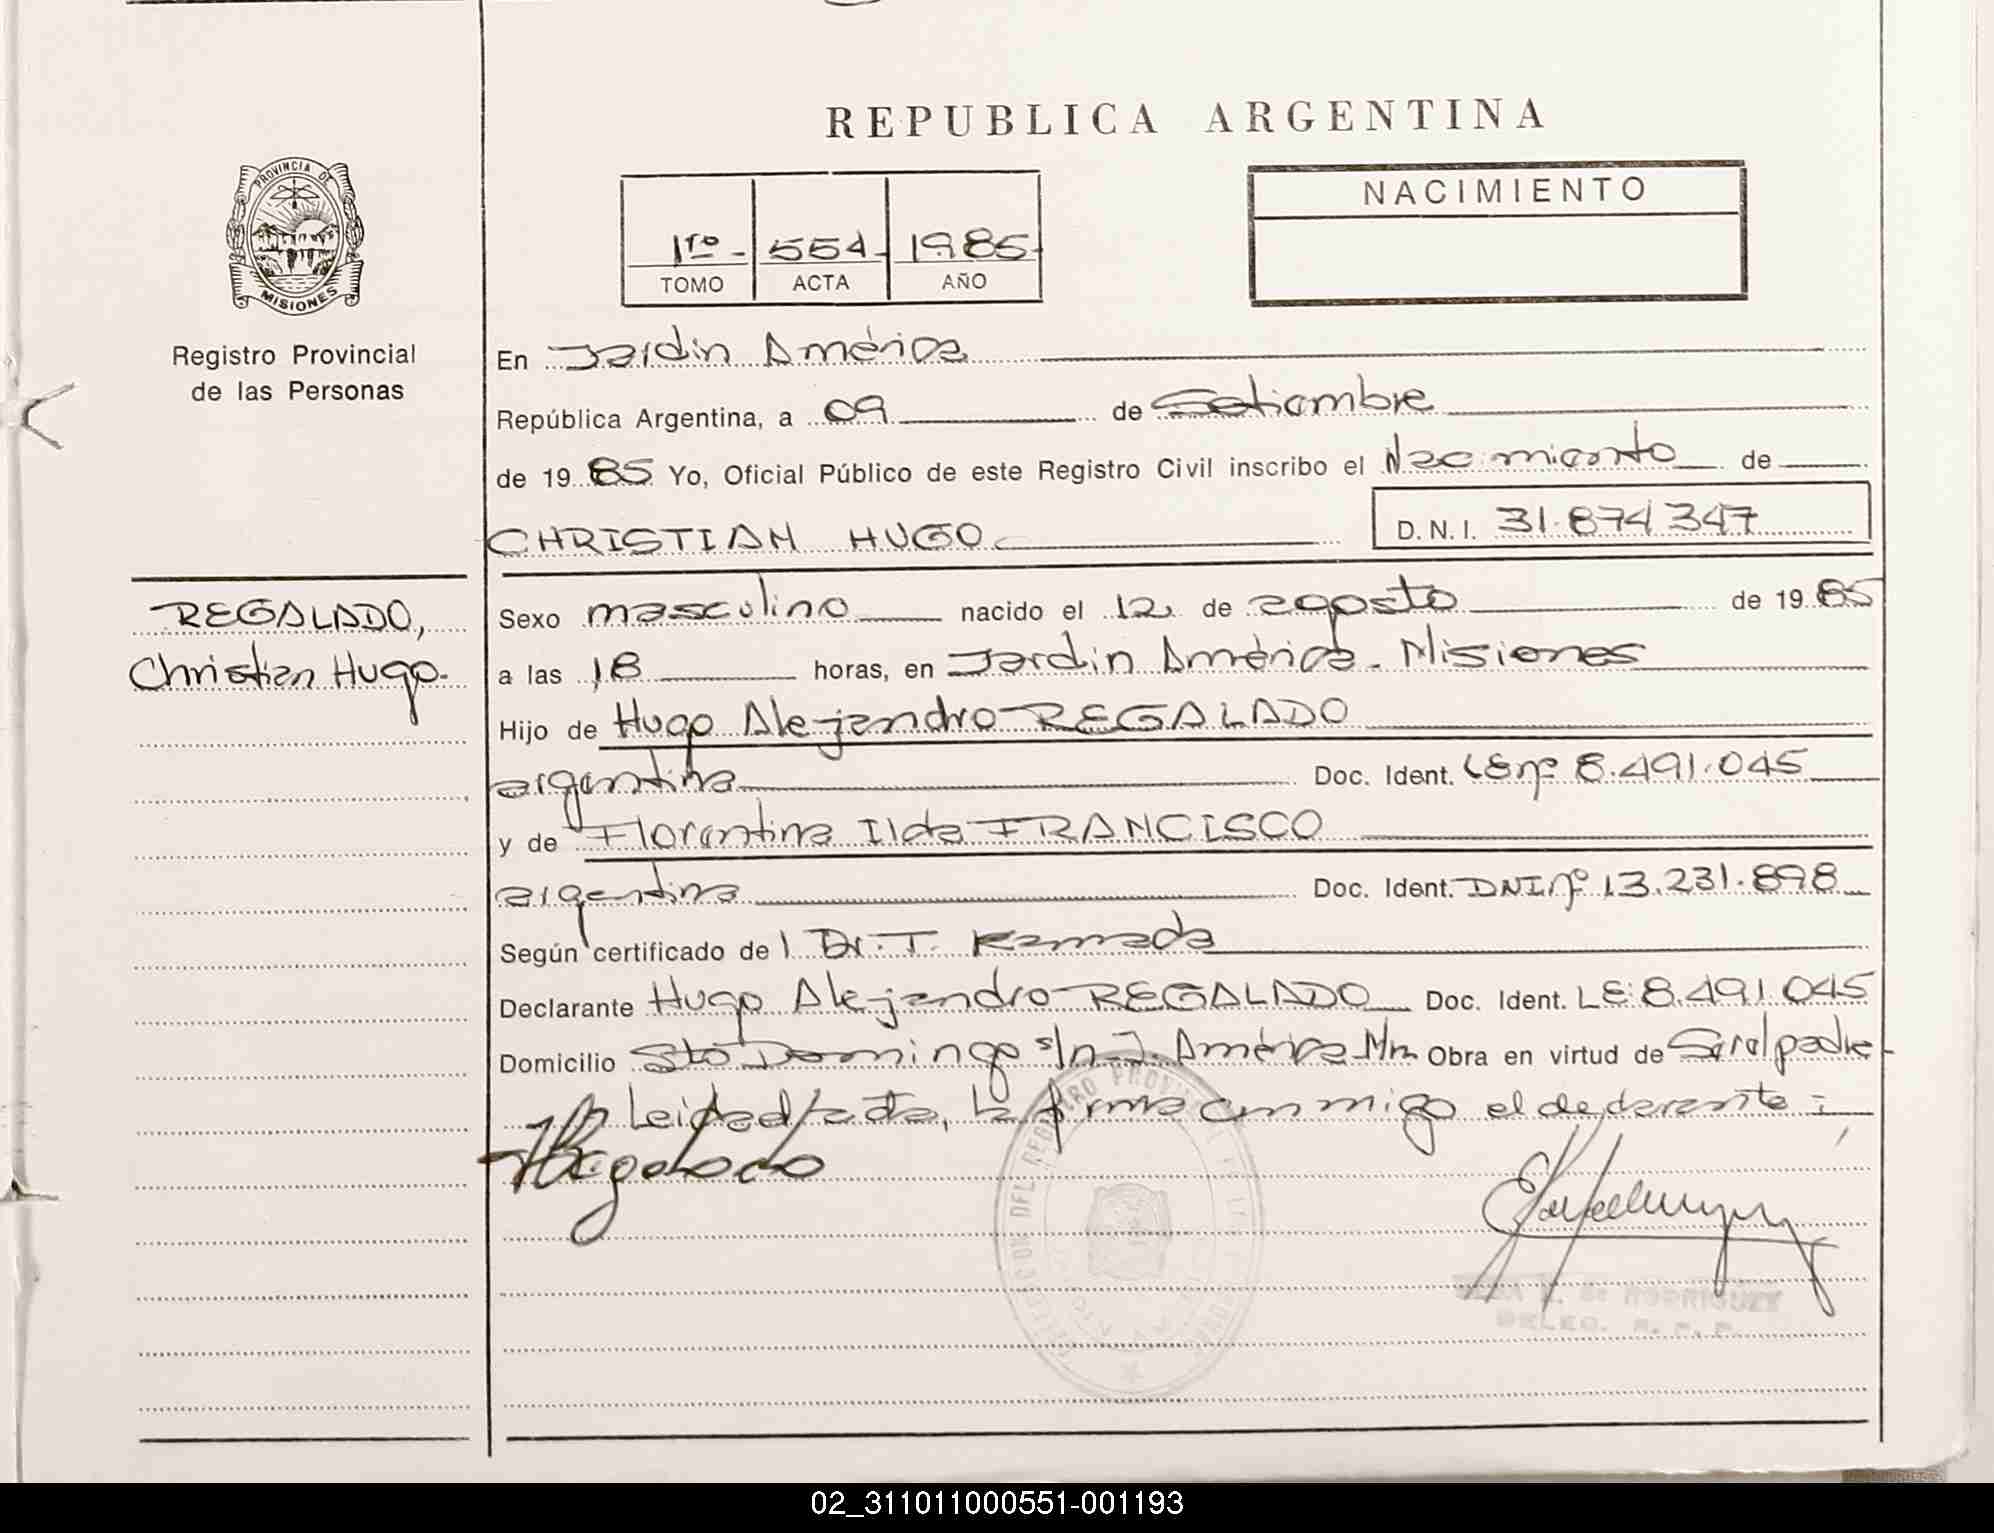 REPUBLICA ARGENTINA
PROVINCIA DE
MISIONES
Registro Provincial
de las Personas
NACIMIENTO
1ro - 554 - 1985 -
TOMO ACTA AÑO
En Jardin América
República Argentina, a 09 de Setiembre
de 19 85 Yo, Oficial Público de este Registro Civil inscribo el Nacimiento de
CHRISTIAN HUGO D.N.I. 31.874347
REGALADO,
Christian Hugo.-
Sexo masculino nacido el 12 de agosto de 19 85
a las 18 horas, en Jardin América - Misiones
Hijo de Hugo Alejandro REGALADO
argentina Doc. Ident. LE nº 8.491.045
y de Florentina Ilda FRANCISCO
argentina Doc. Ident. DNI nº 13.231.898
Según certificado de Dr. T. Kamada
Declarante Hugo Alejandro REGALADO Doc. Ident. LE: 8.491.045
Domicilio Sto Domingo s/n - J. América Mnes Obra en virtud de
Leida el acta, la firma conmigo el declarante :
HRegalado
DEL REGISTRO PROVINCIAL DE LAS
DE RODRIGUEZ
DELEG. R. P. P.
02_311011000551-001193